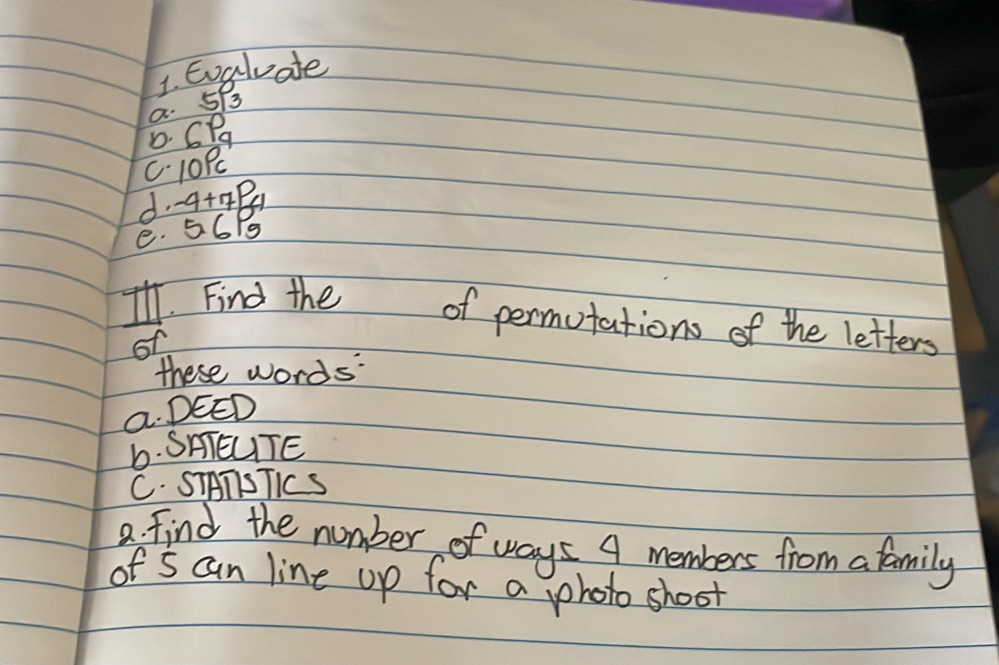 1. Evaluate
a. 5P3
b. 6P4
c. 10Pc
d. -4+7P4
e. 5.6P3
III. Find the of permutations of the letters
of
these words:
a. DEED
b. SATELITE
C. STATISTICS
2. Find the number of ways 4 members from a family
of 5 can line up for a photo shoot